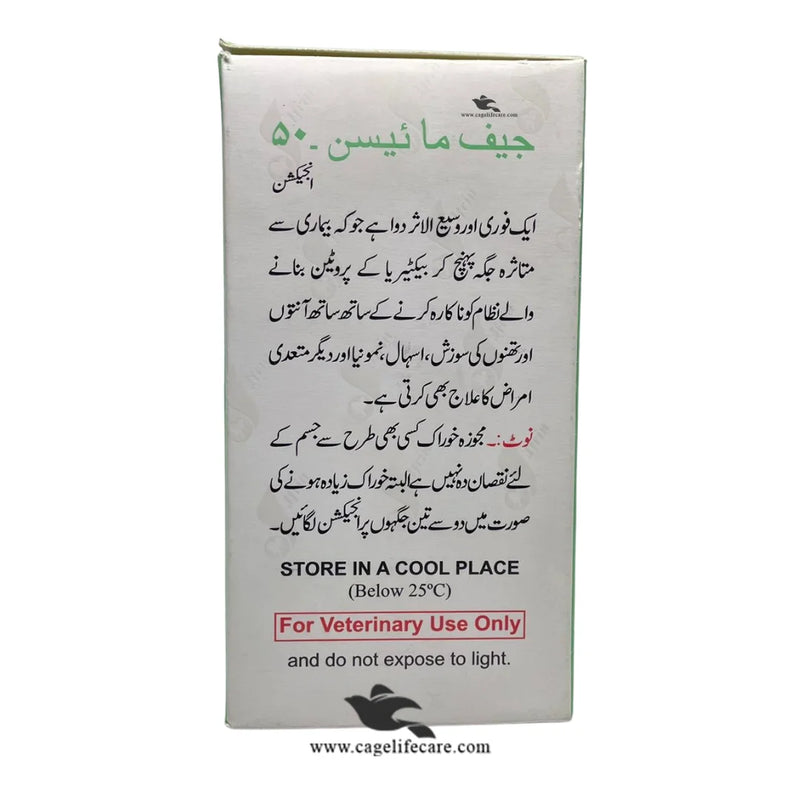 www.cagelifecare.com
جیف مائیسن ۔۵۰
انجیکشن
ایک فوری اور وسیع الاثر دوا ہے جو کہ بیماری سے
متاثرہ جگہ پہنچ کر بیکٹیریا کے پروٹین بنانے
والے نظام کو ناکارہ کرنے کے ساتھ ساتھ آنتوں
اور تھنوں کی سوزش، اسہال، نمونیا اور دیگر متعدی
امراض کا علاج بھی کرتی ہے۔
نوٹ:۔ مجوزہ خوراک کسی بھی طرح سے جسم کے
لئے نقصان دہ نہیں ہے البتہ خوراک زیادہ ہونے کی
صورت میں دو سے تین جگہوں پر انجیکشن لگائیں۔
STORE IN A COOL PLACE
(Below 25ºC)
For Veterinary Use Only
and do not expose to light.
www.cagelifecare.com